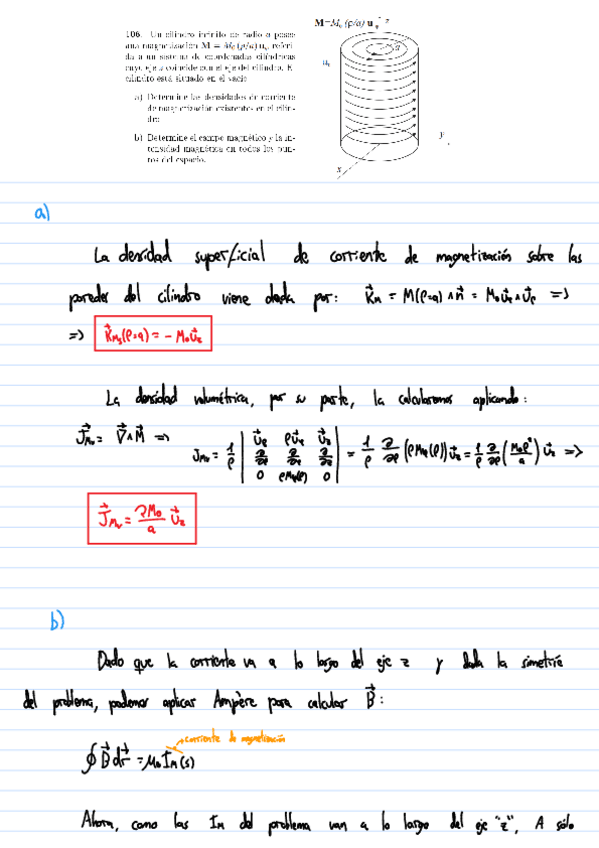 106. Un cilindro infinito de radio a posee
una magnetización M = M₀ (ρ/a) u, referi-
da a un sistema de coordenadas cilíndricas
cuyo eje z coincide con el eje del cilindro. El
cilindro está situado en el vacío
a) Determine las densidades de corriente
de magnetización existentes en el cilin-
dro.
b) Determine el campo magnético y la in-
tensidad magnética en todos los pun-
tos del espacio.
M=M₀ (ρ/a) u
z
a
u
y
x
a)
La densidad superficial de corriente de magnetización sobre las
paredes del cilindro viene dada por: K⃗ₘ = M(ρ=a) ∧ n⃗ = M₀u⃗φ ∧ u⃗ρ =>
=> K⃗ₘₛ(ρ=a) = - M₀u⃗z
La densidad volumétrica, por su parte, la calcularemos aplicando:
J⃗ₘᵥ = ∇⃗ ∧ M⃗ => Jₘᵥ = 1/ρ | u⃗ρ ρu⃗φ u⃗z | = 1/ρ ∂/∂ρ (ρMφ(ρ)) u⃗z = 1/ρ ∂/∂ρ (M₀ρ²/a) u⃗z =>
∂/∂ρ ∂/∂φ ∂/∂z
0 ρMφ(ρ) 0
J⃗ₘᵥ = 2M₀/a u⃗z
b)
Dado que la corriente va a lo largo del eje z y dada la simetría
del problema, podemos aplicar Ampère para calcular B⃗:
corriente de magnetización
∮ B⃗ dr⃗ = μ₀ Iₘ(s)
Ahora, como las Iₘ del problema van a lo largo del eje "z", A sólo